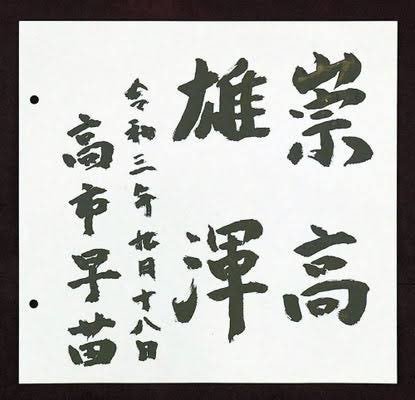 崇高
雄渾
令和三年九月十八日
高市早苗